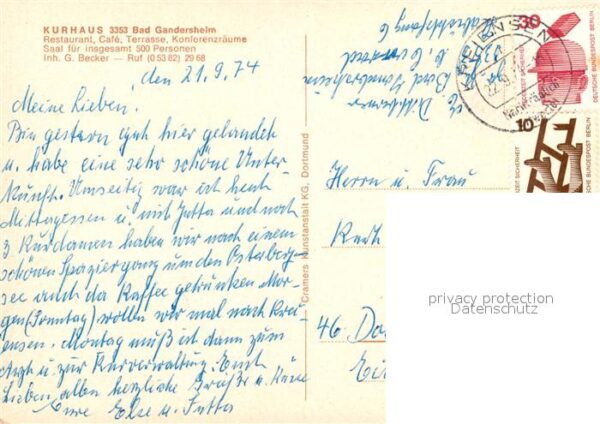 KURHAUS 3353 Bad Gandersheim
Restaurant, Café, Terrasse, Konferenzräume
Saal für insgesamt 500 Personen
Inh. G. Becker — Ruf (0 53 82) 29 58
den 21.9.74
Meine Lieben.
Bin gestern gut hier gelandet
u. habe eine sehr schöne Unter-
kunft. Umseitig war ich heute
Mittagessen u. mit Jutta und noch
3 Kurdamen haben wir nach einem
schönen Spaziergang um den Osterberg-
see auch da Kaffee getrunken Mor-
gen (Sonntag) wollen wir mal nach Krei-
ensen. Montag muß ich dann zum
Arzt u. zur Kurverwaltung. Euch
Lieben allen herzliche Grüße u. Küsse
Eure Else u. Jutta
Cramers Kunstanstalt KG, Dortmund
Bad Gandersheim
KREIENSEN
30
DEUTSCHE BUNDESPOST BERLIN
10
JEDERZEIT SICHERHEIT
DEUTSCHE BUNDESPOST BERLIN
Herrn u. Frau
46 Do
privacy protection
Datenschutz